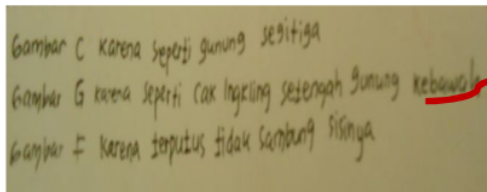 Gambar C karena seperti gunung segitiga
Gambar G karena seperti cak Ingkling setengah gunung kebawah
Gambar F karena terputus tidak sambung sisinya